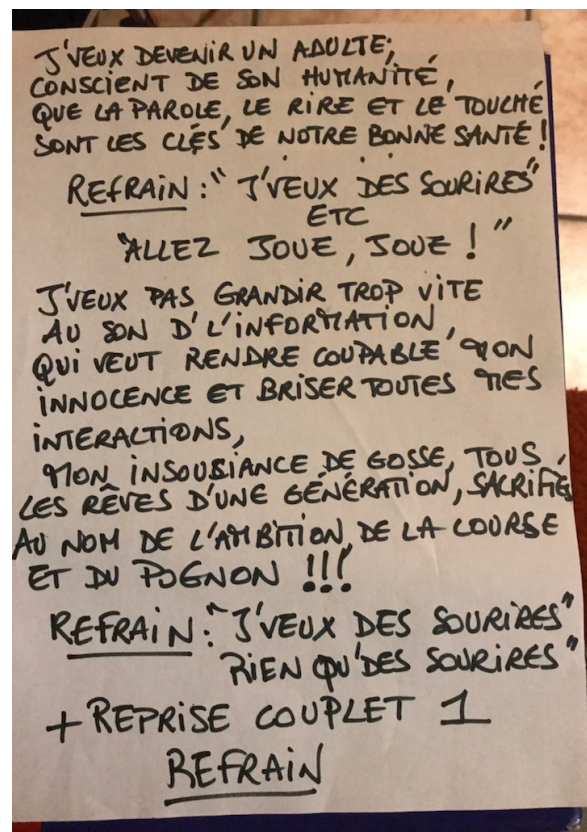 J'VEUX DEVENIR UN ADULTE,
CONSCIENT DE SON HUMANITÉ,
QUE LA PAROLE, LE RIRE ET LE TOUCHÉ
SONT LES CLÉS DE NOTRE BONNE SANTÉ !
REFRAIN : "J'VEUX DES SOURIRES"
ETC
"ALLEZ JOUE, JOUE ! "
J'VEUX PAS GRANDIR TROP VITE
AU SON D'L'INFORMATION,
QUI VEUT RENDRE COUPABLE MON
INNOCENCE ET BRISER TOUTES MES
INTERACTIONS,
MON INSOUSIANCE DE GOSSE, TOUS
LES RÊVES D'UNE GÉNÉRATION, SACRIFIÉS
AU NOM DE L'AMBITION, DE LA COURSE
ET DU POGNON !!!
REFRAIN : "J'VEUX DES SOURIRES"
RIEN QU'DES SOURIRES"
+ REPRISE COUPLET 1
REFRAIN